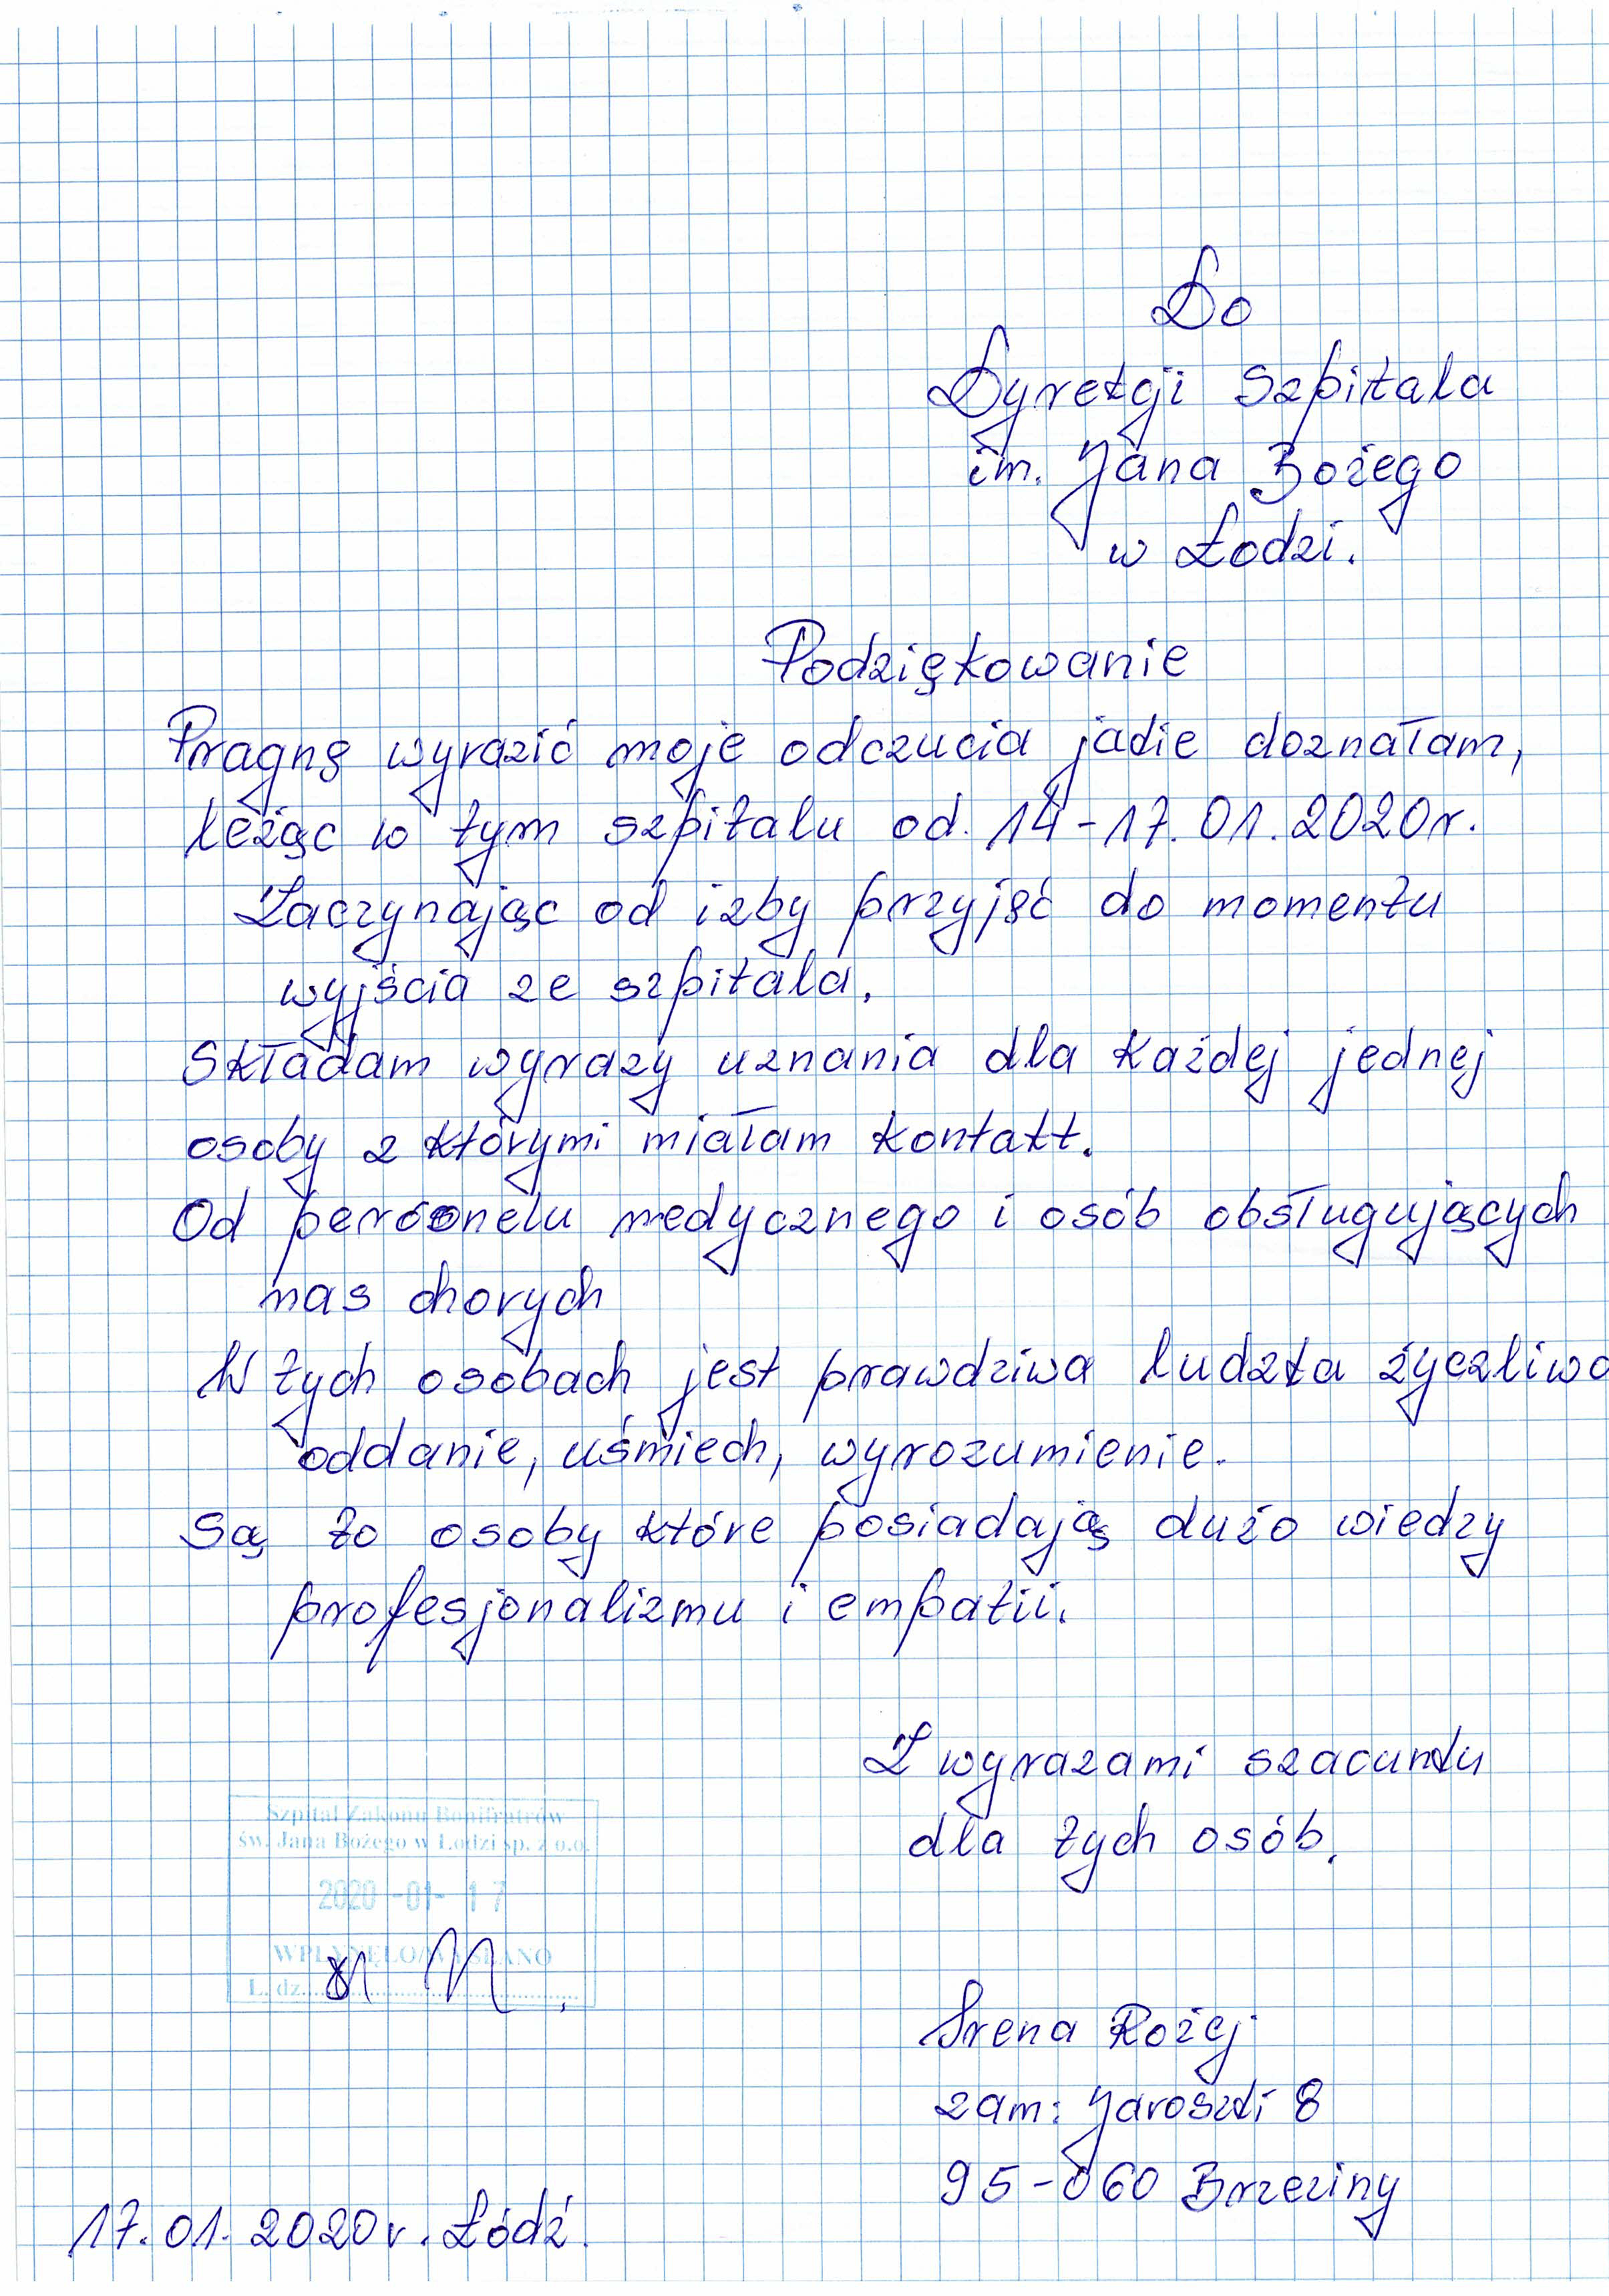 Do
Dyrekcji Szpitala
im. Jana Bożego
w Łodzi.
Podziękowanie
Pragnę wyrazić moje odczucia jakie doznałam,
leżąc w tym szpitalu od. 14-17.01.2020r.
Zaczynając od izby przyjęć do momentu
wyjścia ze szpitala.
Składam wyrazy uznania dla każdej jednej
osoby z którymi miałam kontakt.
Od personelu medycznego i osób obsługujących
nas chorych
W tych osobach jest prawdziwa ludzka życzliwo
oddanie, uśmiech, wyrozumienie.
Są to osoby które posiadają dużo wiedzy
profesjonalizmu i empatii.
Z wyrazami szacunku
dla tych osób.
Szpital Zakonu Bonifratrów
św. Jana Bożego w Łodzi sp. z o.o.
2020 -01- 17
WPŁYNĘŁO/WYSŁANO
L. dz.
Irena Rożej
zam: Jaroszki 8
95-060 Brzeziny
17.01.2020r. Łódź.